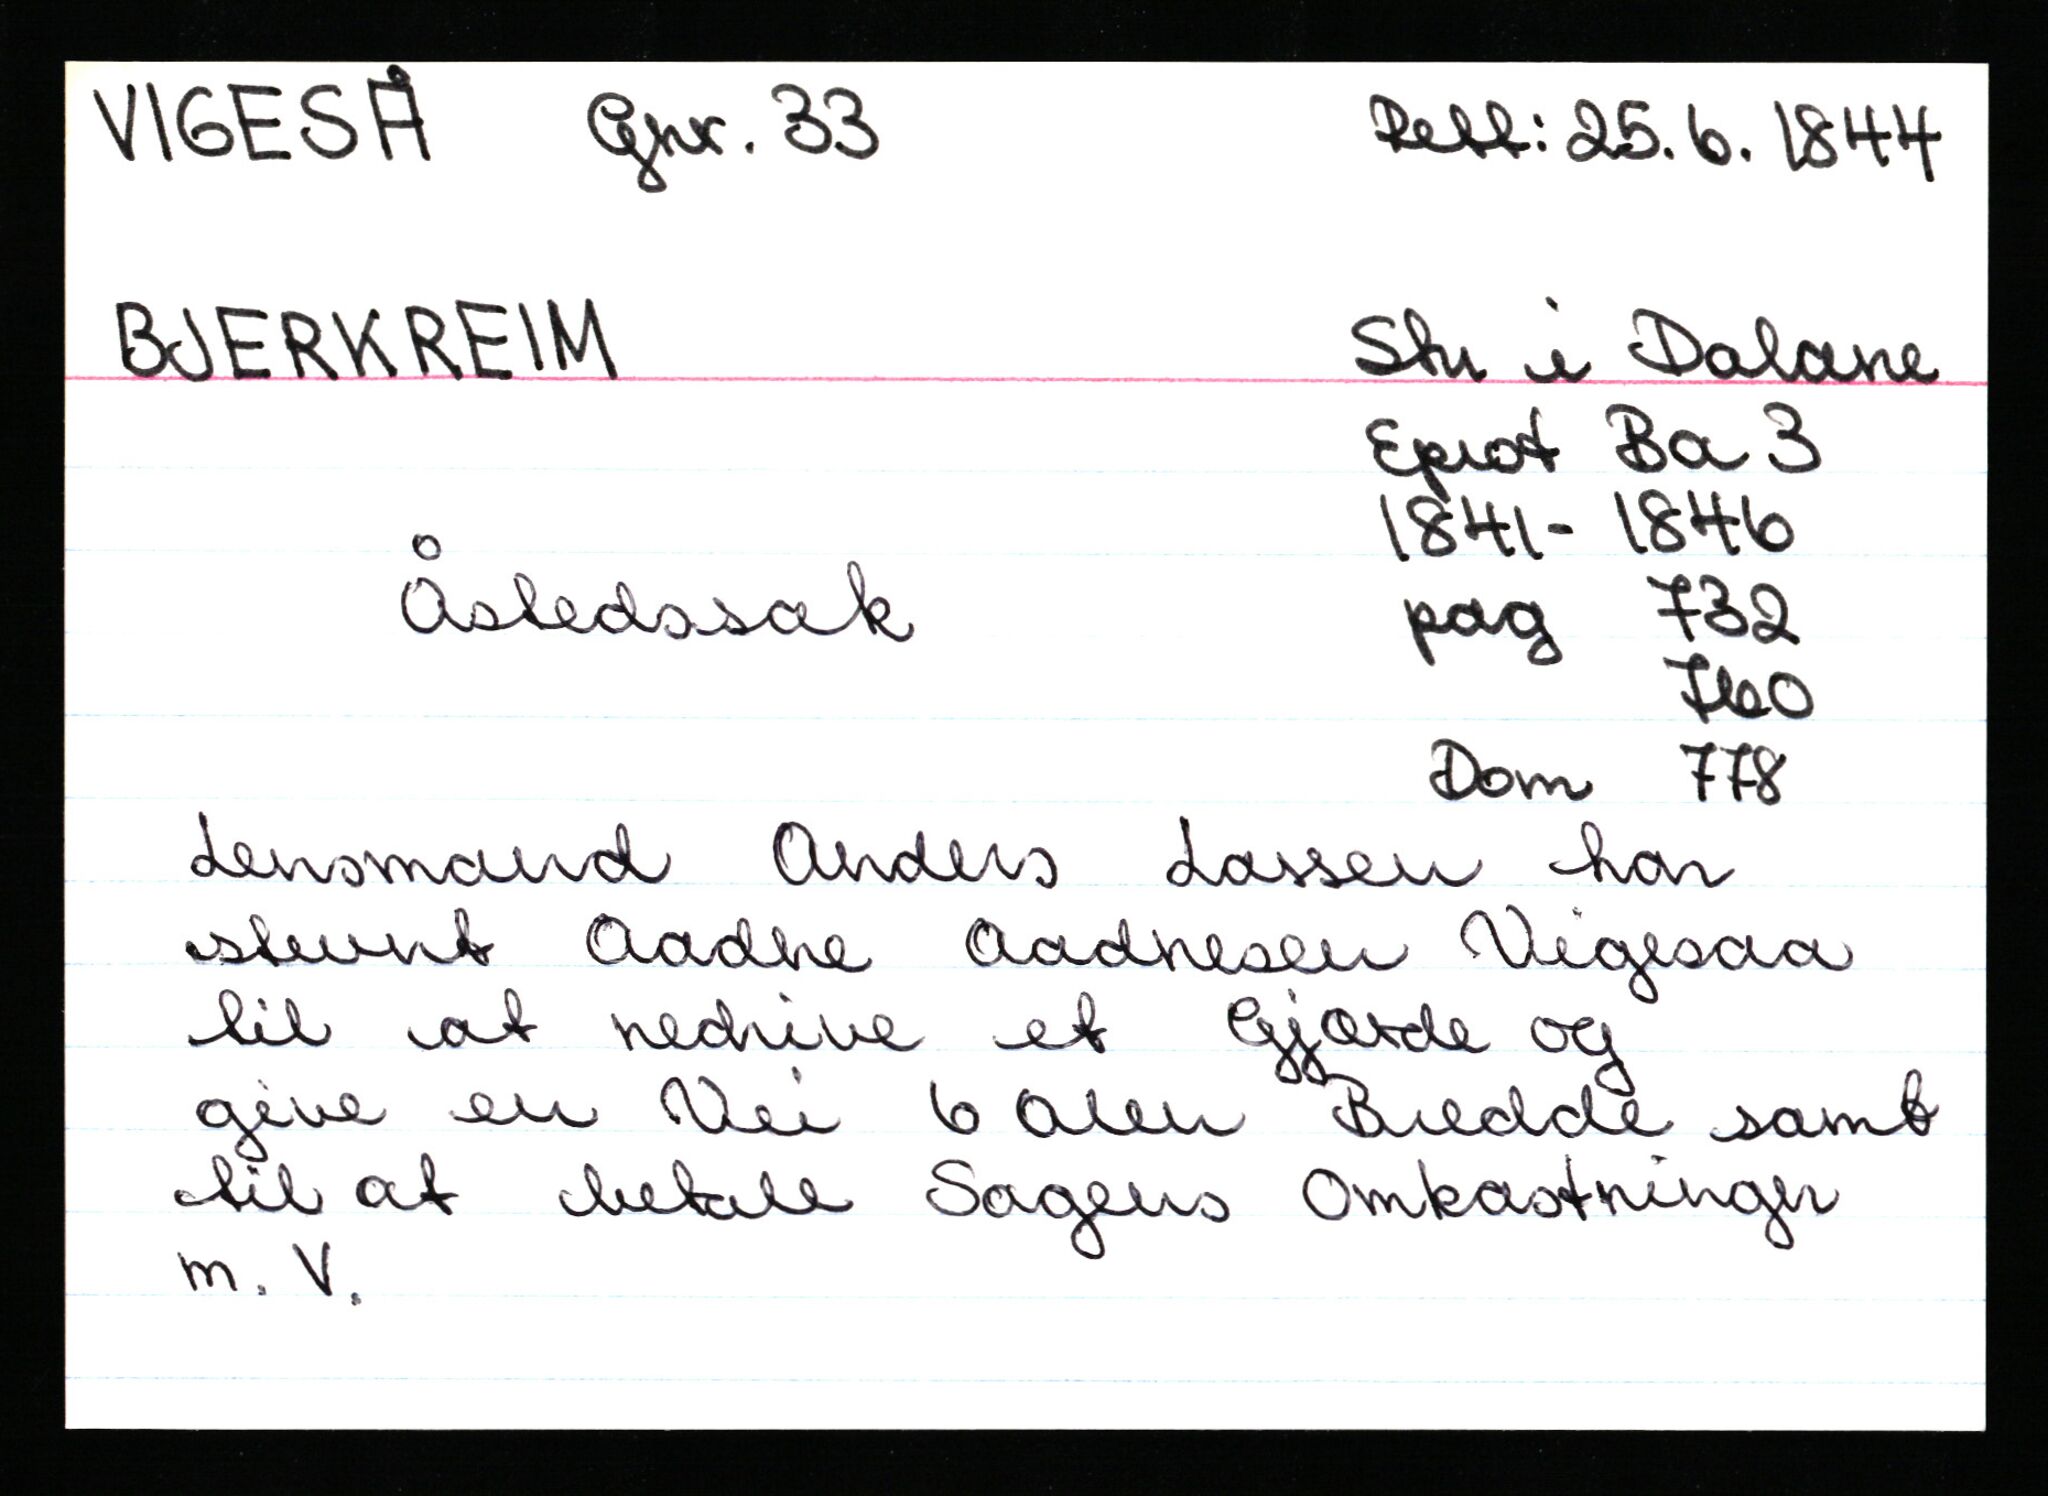 VIGESÅ Gnr. 33 Rett: 25.6.1844
BJERKREIM Skr i Dalane
Eprot Ba 3
1841-1846
Åstedssak
pag 732
760
Dom 778
Lensmand Anders Lassen har
stevnt Aadne Aadnesen Vigesaa
til at nedrive et Gjærde og
give en Vei 6 Alen Bredde samt
til at betale Sagens Omkastninger
m. V.